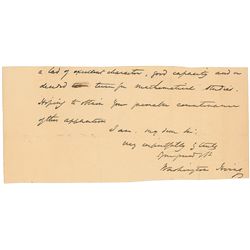 a lad of excellent character, good capacity and a
decided turn for mathematical studies.
Hoping to obtain your favorable countenance
of his application
I am, my dear Sir,
very respectfully & truly
Your friend &c
Washington Irving